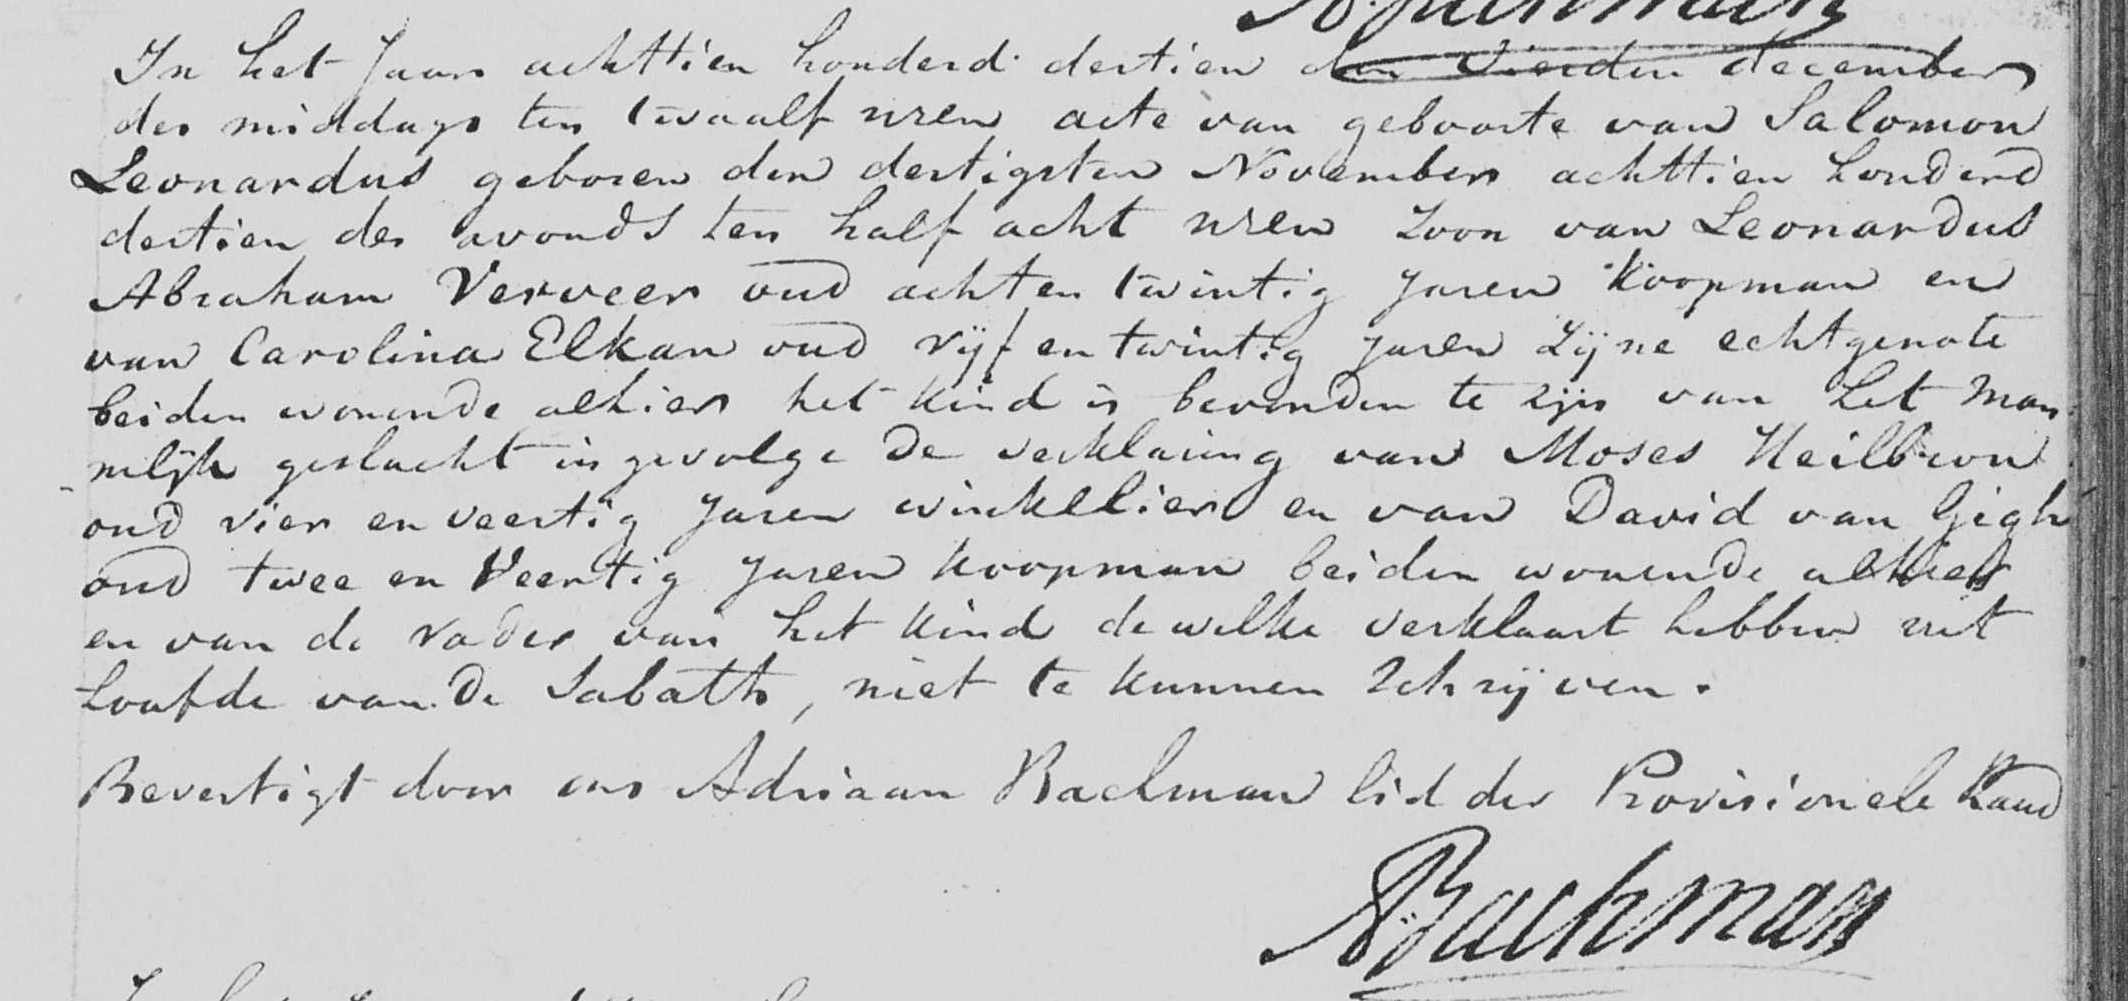 In het Jaar achttien honderd dertien den vierden december
des middags ten twaalf uren acte van geboorte van Salomon
Leonardus geboren den dertigsten November achttien honderd
dertien des avonds ten half acht uren zoon van Leonardus
Abraham Verveer oud achten twintig Jaren koopman en
van Carolina Elkan oud vijf en twintig Jaren zijne echtgenote
beiden wonende alhier het kind is bevonden te zijn van het Man
nelijk geslacht ingevolge de verklaring van Moses Heilbron
oud vier en veertig Jaren winkelier en van David van Gigh
oud twee en Veertig Jaren koopman beiden wonende alhier
en van de vader van het kind dewelke verklaart hebben uit
hoofde van de Sabath, niet te kunnen schrijven.
Bevestigt door ons Adriaan Bachman lid der Provisionele Raad
A Bachman